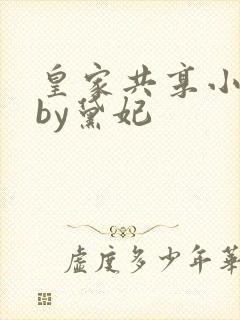 皇家共享小
by黛妃
虚度多少年華